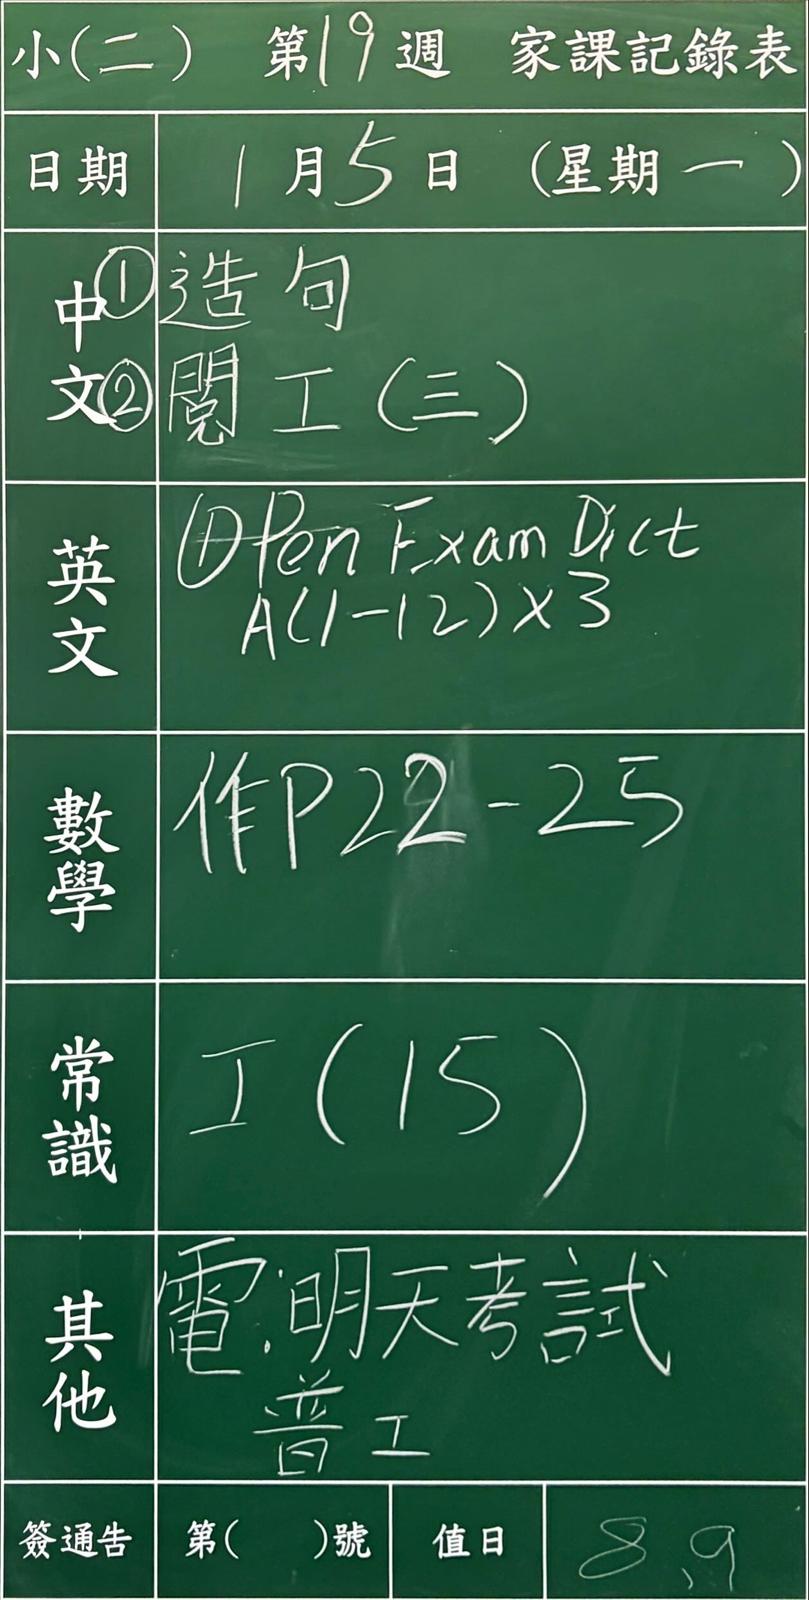 小(二) 第19週 家課記錄表
日期 1月5日 (星期一)
中文 ①造句
②閱工(三)
英文 ①Pen Exam Dict
A(1-12)×3
數學 作P22-25
常識 工(15)
其他 電:明天考試
普工
簽通告 第( )號 值日 8,9